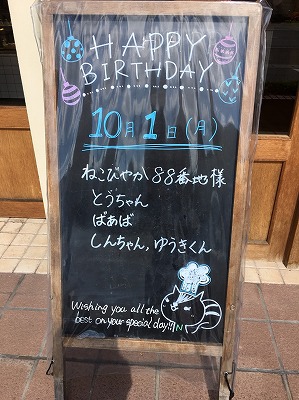 HAPPY
BIRTHDAY
10月1日(月)
ねこびやか88番地様
とうちゃん
ばあば
しんちゃん,ゆうきくん
Wishing you all the
best on your special day!!